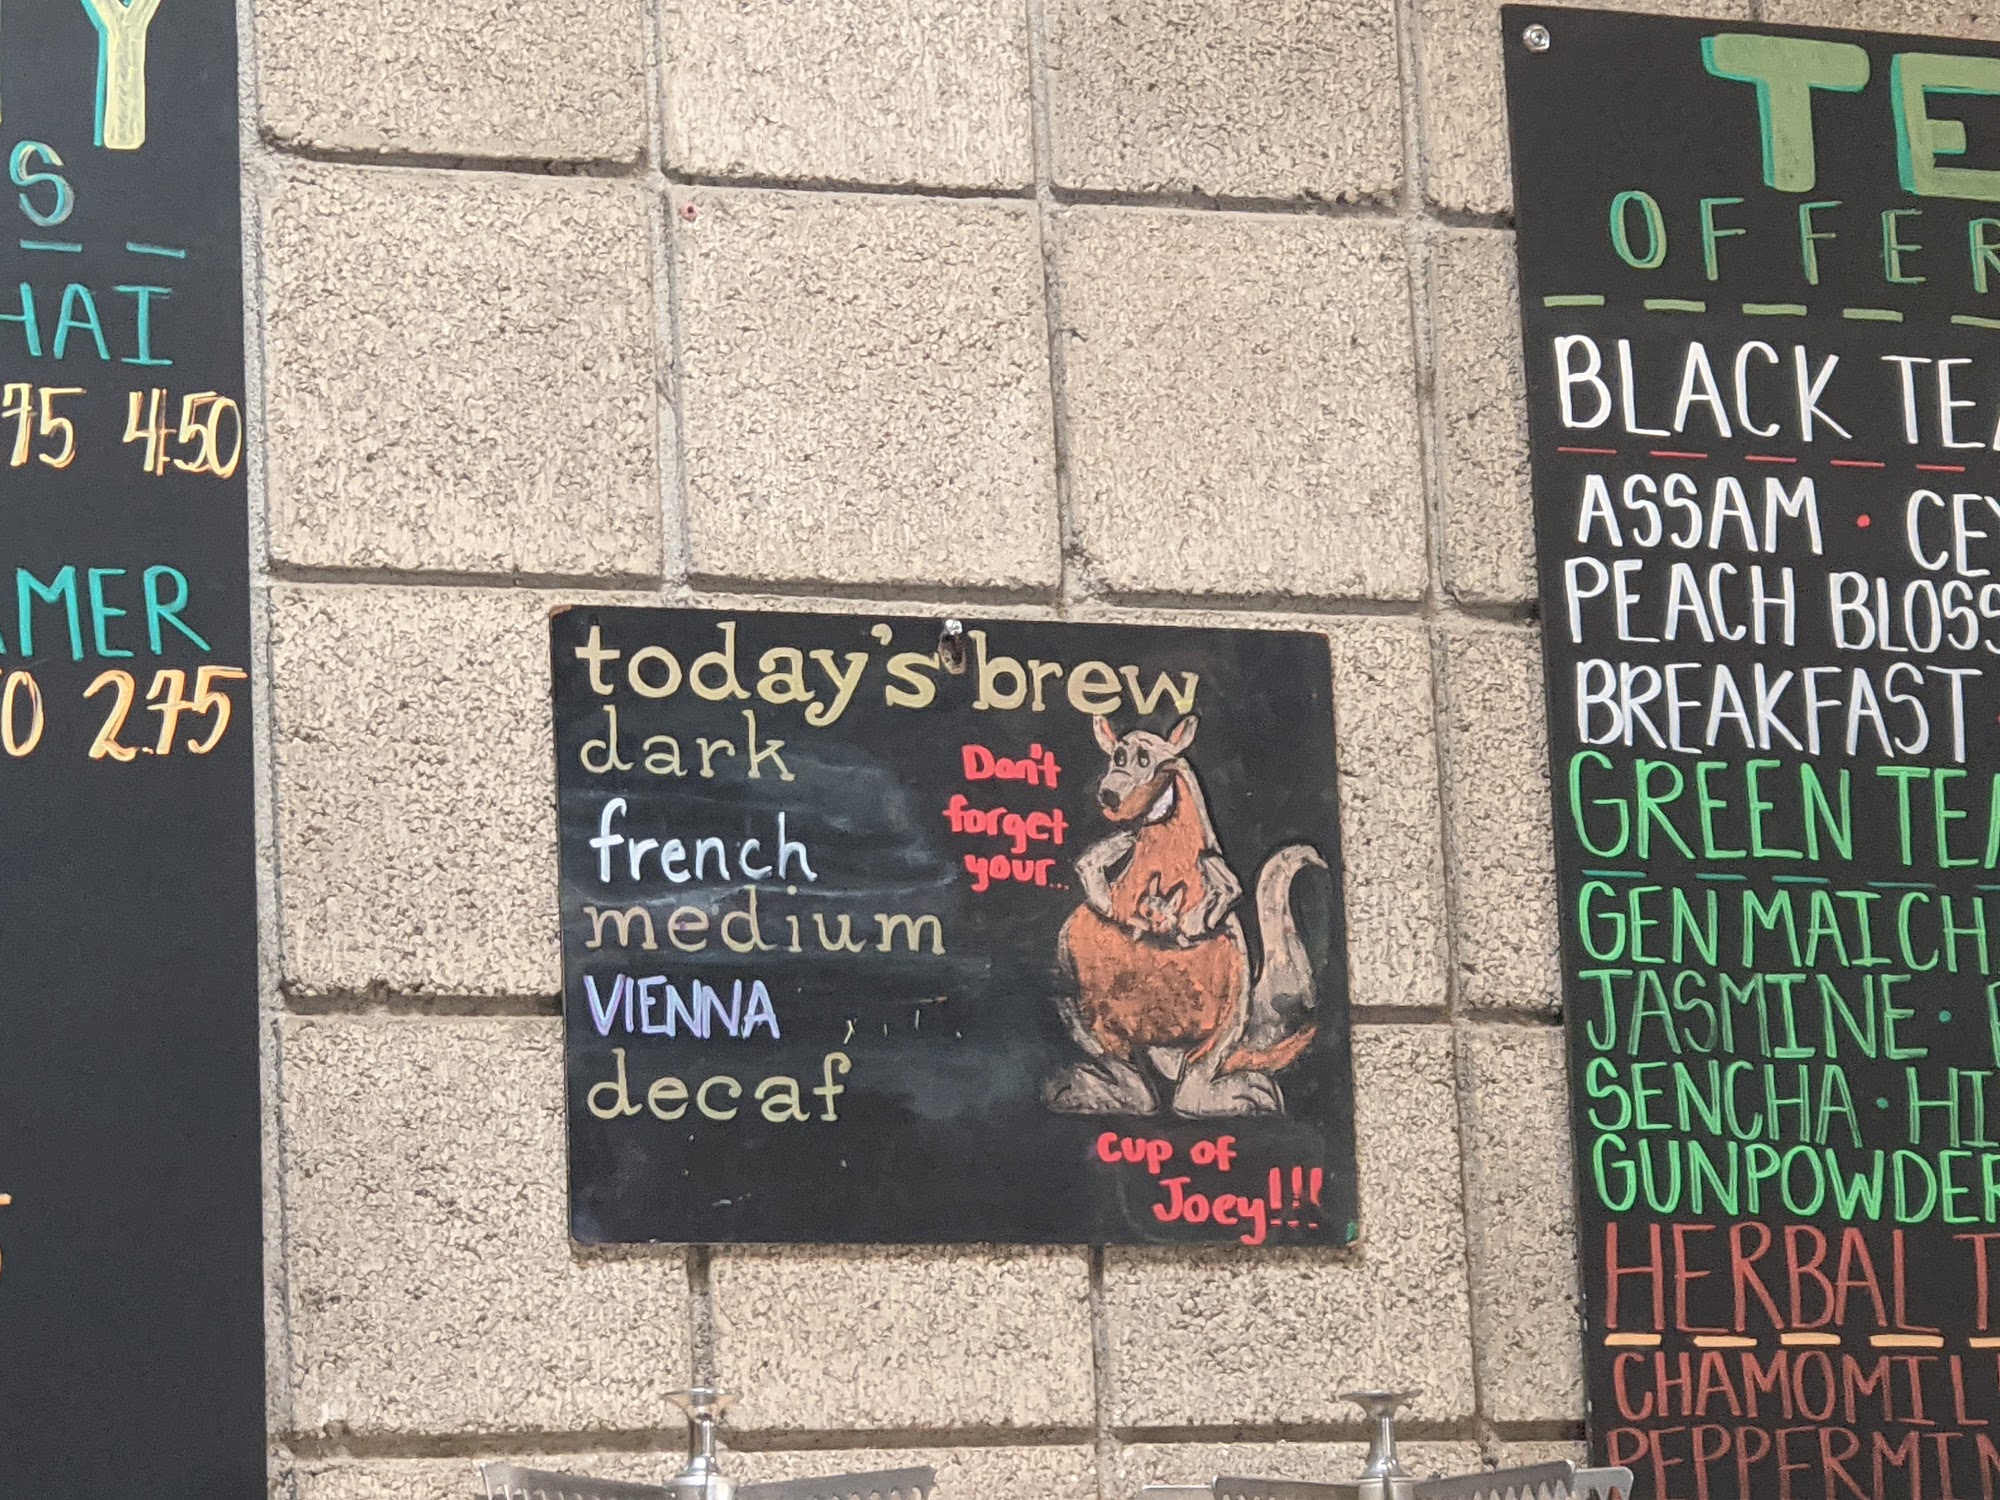 Y
S
HAI
75 4.50
AMER
0 2.75
today's brew
dark
french
medium
VIENNA
decaf
Don't
forget
your...
cup of
Joey!!!
TE
OFFER
BLACK TEA
ASSAM · CEY
PEACH BLOSS
BREAKFAST
GREEN TEA
GENMAICH
JASMINE ·
SENCHA · HI
GUNPOWDER
HERBAL T
CHAMOMIL
PEPPERMIN